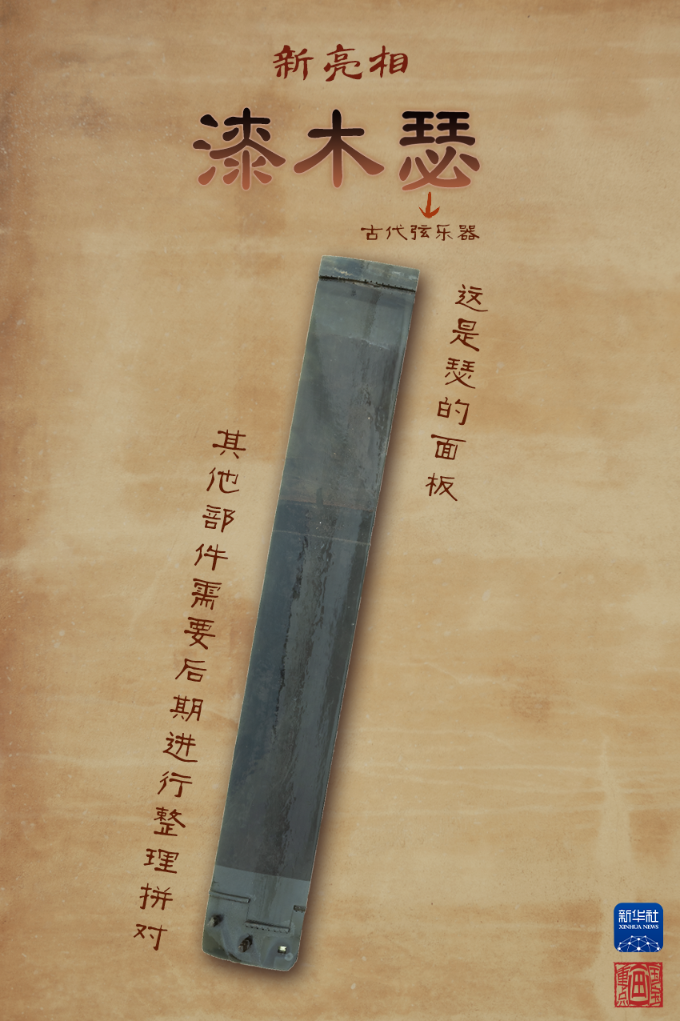 新亮相
漆木瑟
古代弦乐器
这是瑟的面板
其他部件需要后期进行整理拼对
新华社
XINHUA NEWS